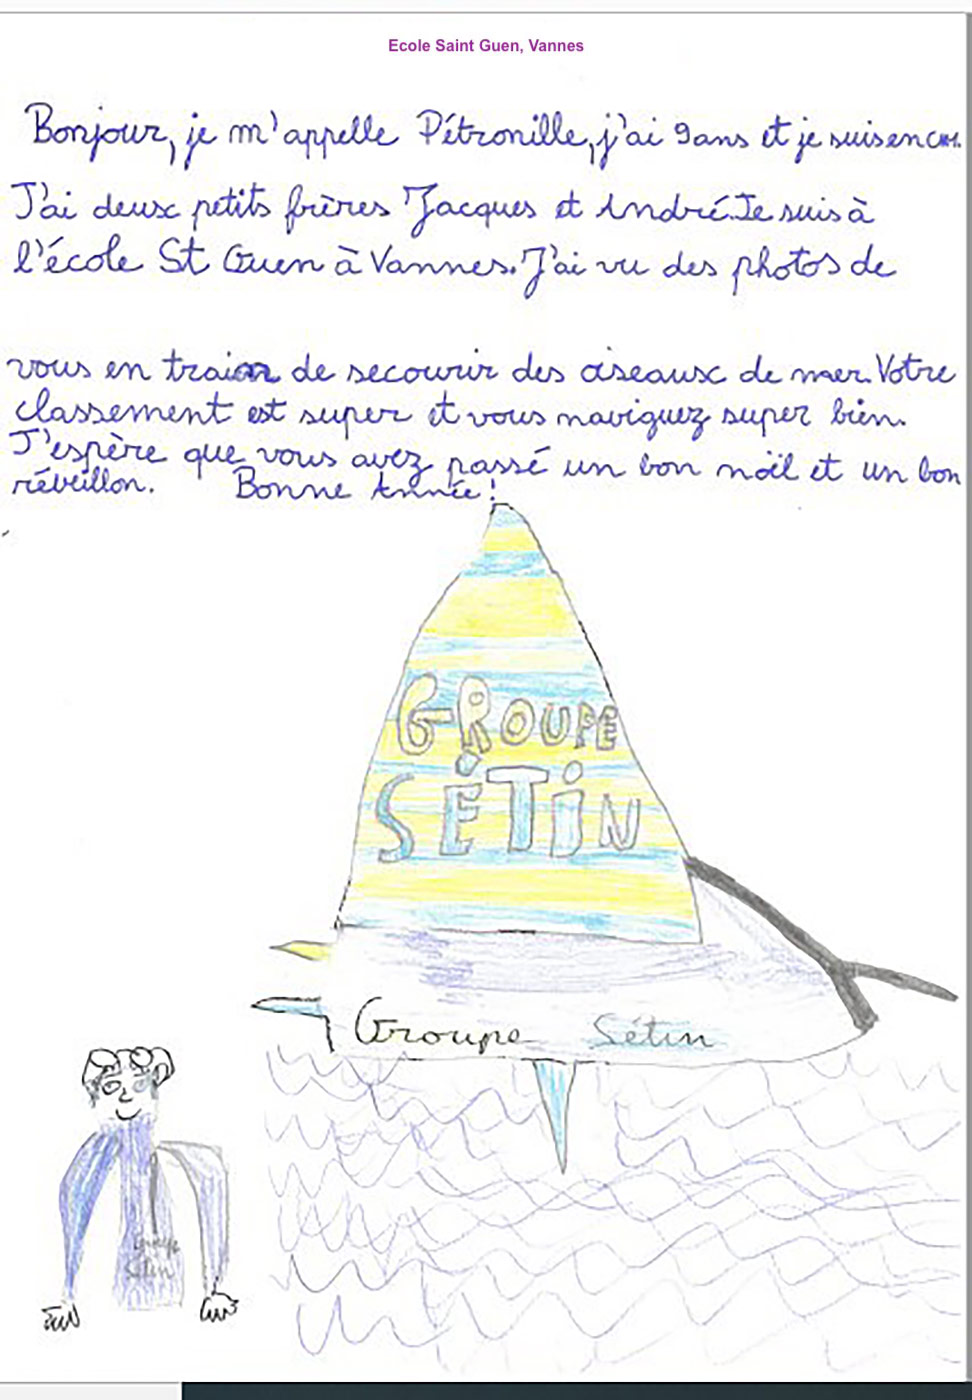 Ecole Saint Guen, Vannes
Bonjour, je m'appelle Pétronille, j'ai 9 ans et je suis en CM1.
J'ai deux petits frères Jacques et André. Je suis à
l'école St Guen à Vannes. J'ai vu des photos de
vous en train de secourir des oiseaux de mer. Votre
classement est super et vous naviguez super bien.
J'espère que vous avez passé un bon noël et un bon
réveillon. Bonne Année !
GROUPE
SÉTiN
Groupe Sétin
Groupe
Sétin